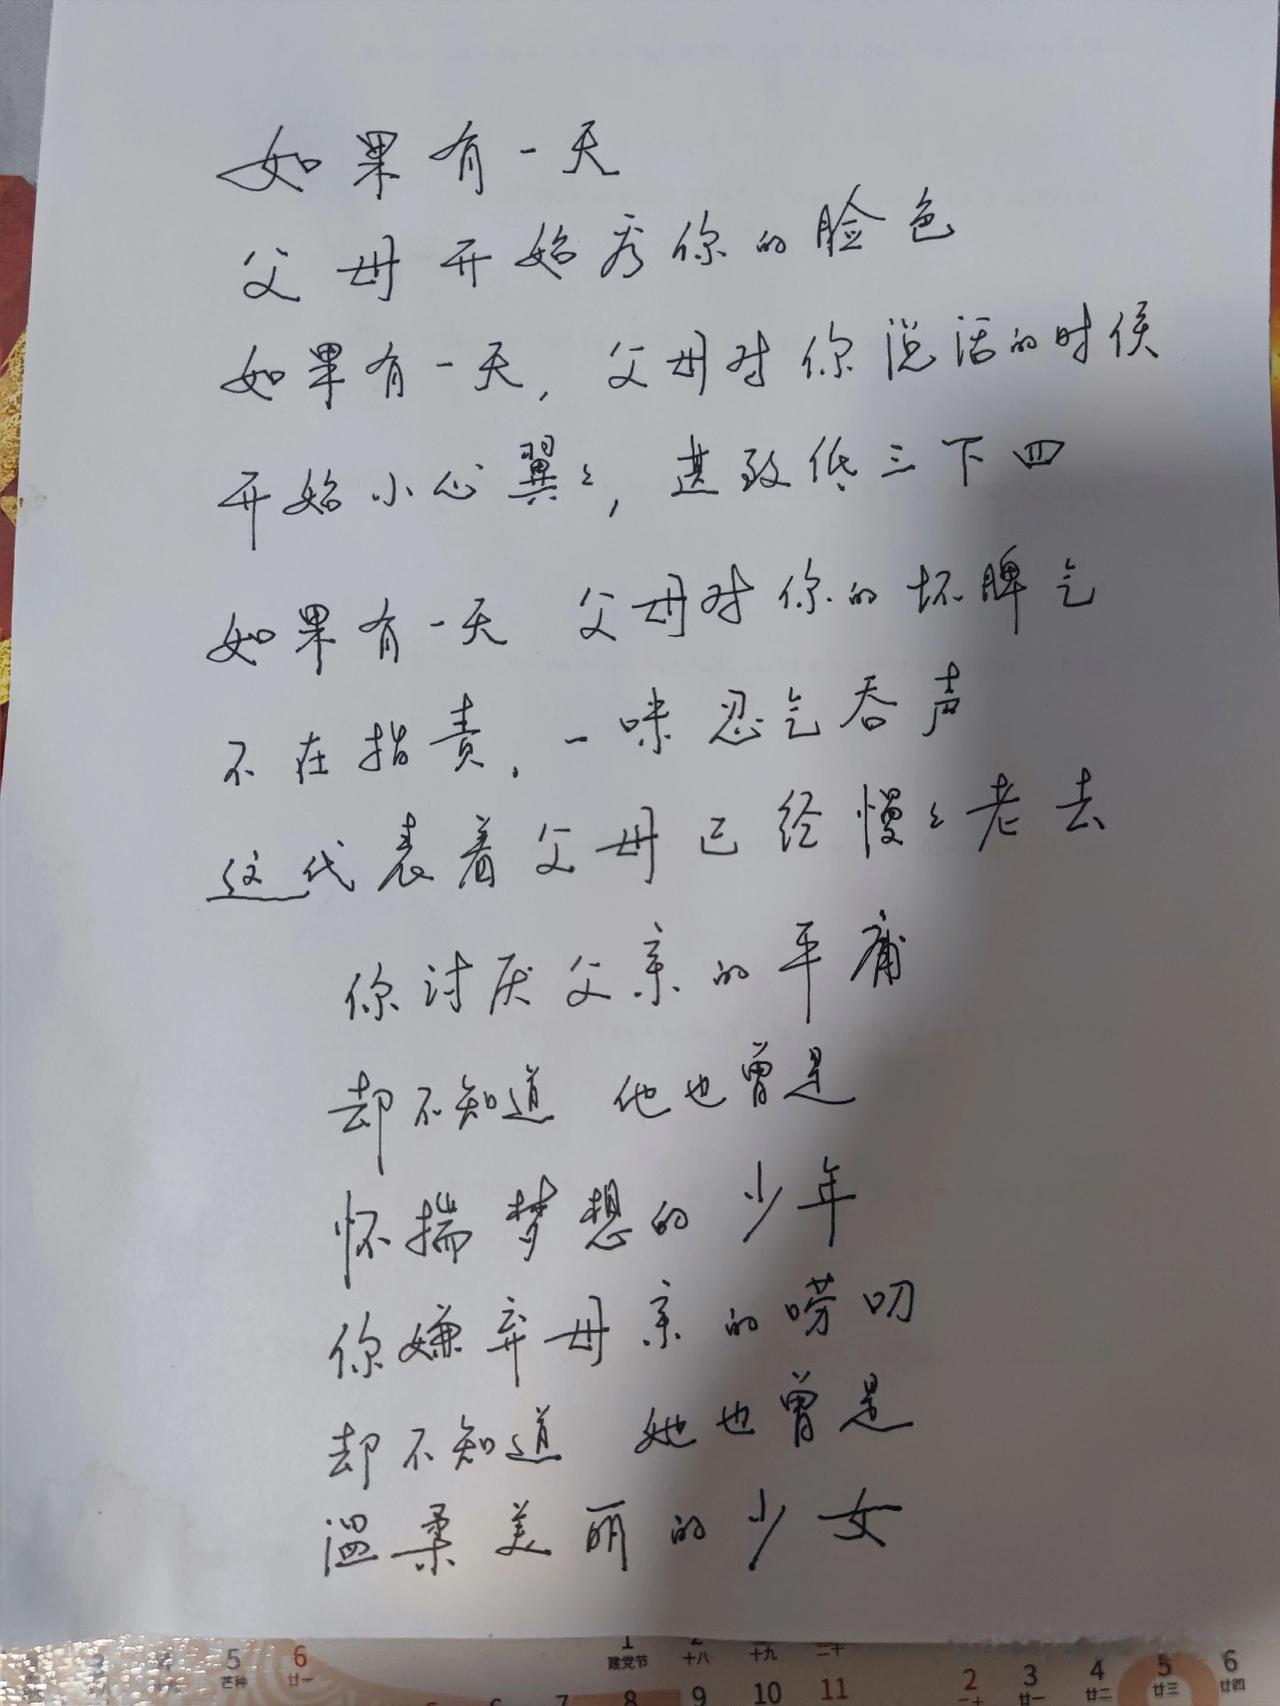 如果有一天
父母开始看你的脸色
如果有一天,父母对你说话的时候
开始小心翼々,甚致低三下四
如果有一天 父母对你的坏脾气
不在指责,一味忍气吞声
这代表着父母已经慢々老去
你讨厌父亲的平庸
却不知道 他也曾是
怀揣梦想的少年
你嫌弃母亲的唠叨
却不知道 她也曾是
温柔美丽的少女
5 6 1
芒种 廿一 建党节 十八 十九 二十
8 9 10 11 2 3 4 5 6
廿一 廿二 廿三 廿四